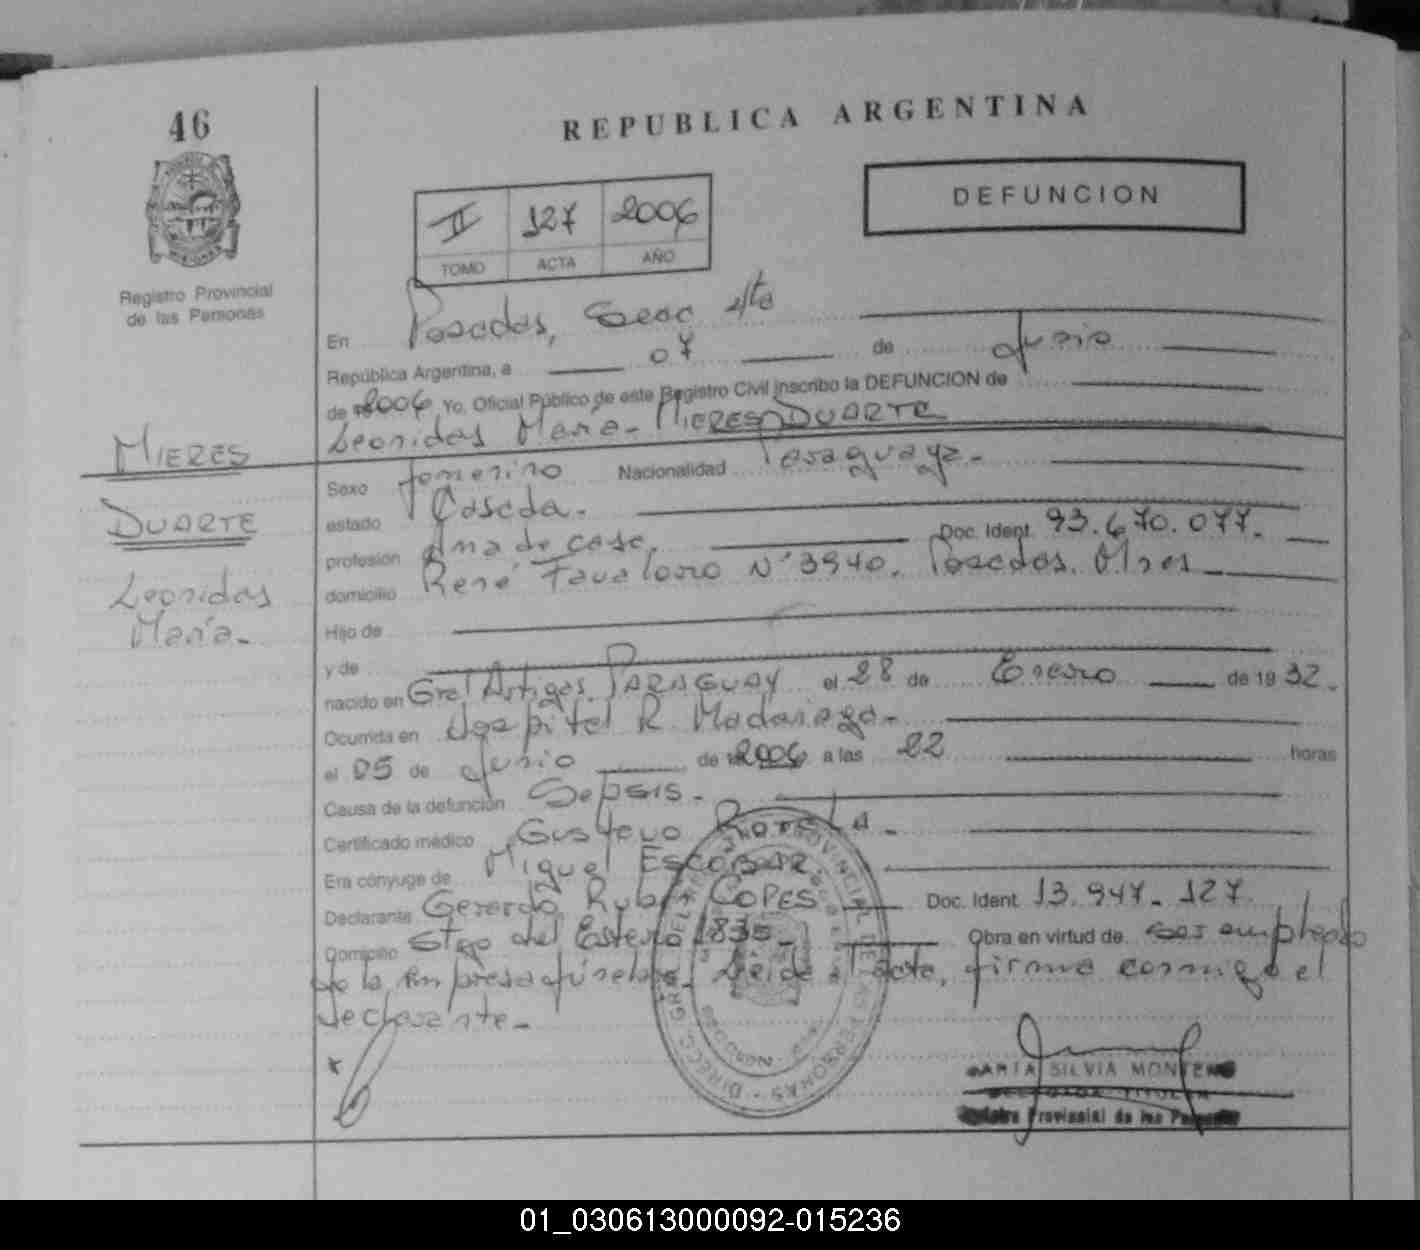 46
REPUBLICA ARGENTINA
DEFUNCION
II 127 2006
TOMO ACTA AÑO
Registro Provincial
de las Personas
En Posadas, Secc 4ta
República Argentina, a 07 de Junio
de 2006 Yo, Oficial Público de este Registro Civil inscribo la DEFUNCION de
Leonidas Maria - MIERES DUARTE
MIERES
DUARTE
Leonidas
María -
Sexo femenino Nacionalidad Paraguaya -
estado Casada.
profesión Ama de casa, Doc. Ident. 93.670.077.
domicilio René Favaloro N° 3940, Posadas. Mnes
Hijo de
y de
nacido en Gral Artigas. PARAGUAY el 28 de Enero de 1932.
Ocurrida en Hospital R. Madariaga -
el 05 de Junio de 2006 a las 22 horas
Causa de la defunción Sepsis.
Certificado médico Gustavo
Era cónyuge de Miguel ESCOBAR
Declarante Gerardo Ruben COPES Doc. Ident. 13.947.127.
Domicilio Stgo del Estero 1835 - Obra en virtud de ser empleado
de la empresa fúnebre. Leida el Acta, firma conmigo el
declarante -
MARIA SILVIA MONTERO
DELEGADA TITULAR
Registro Provincial de las Personas
01_030613000092-015236